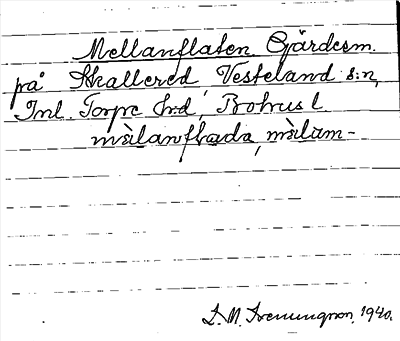 Mellanflaten Gärdesm.
på Skallered Vesteland s:n,
Inl. Torpe h:d, Bohus l.
målanflada, målam-
1940.